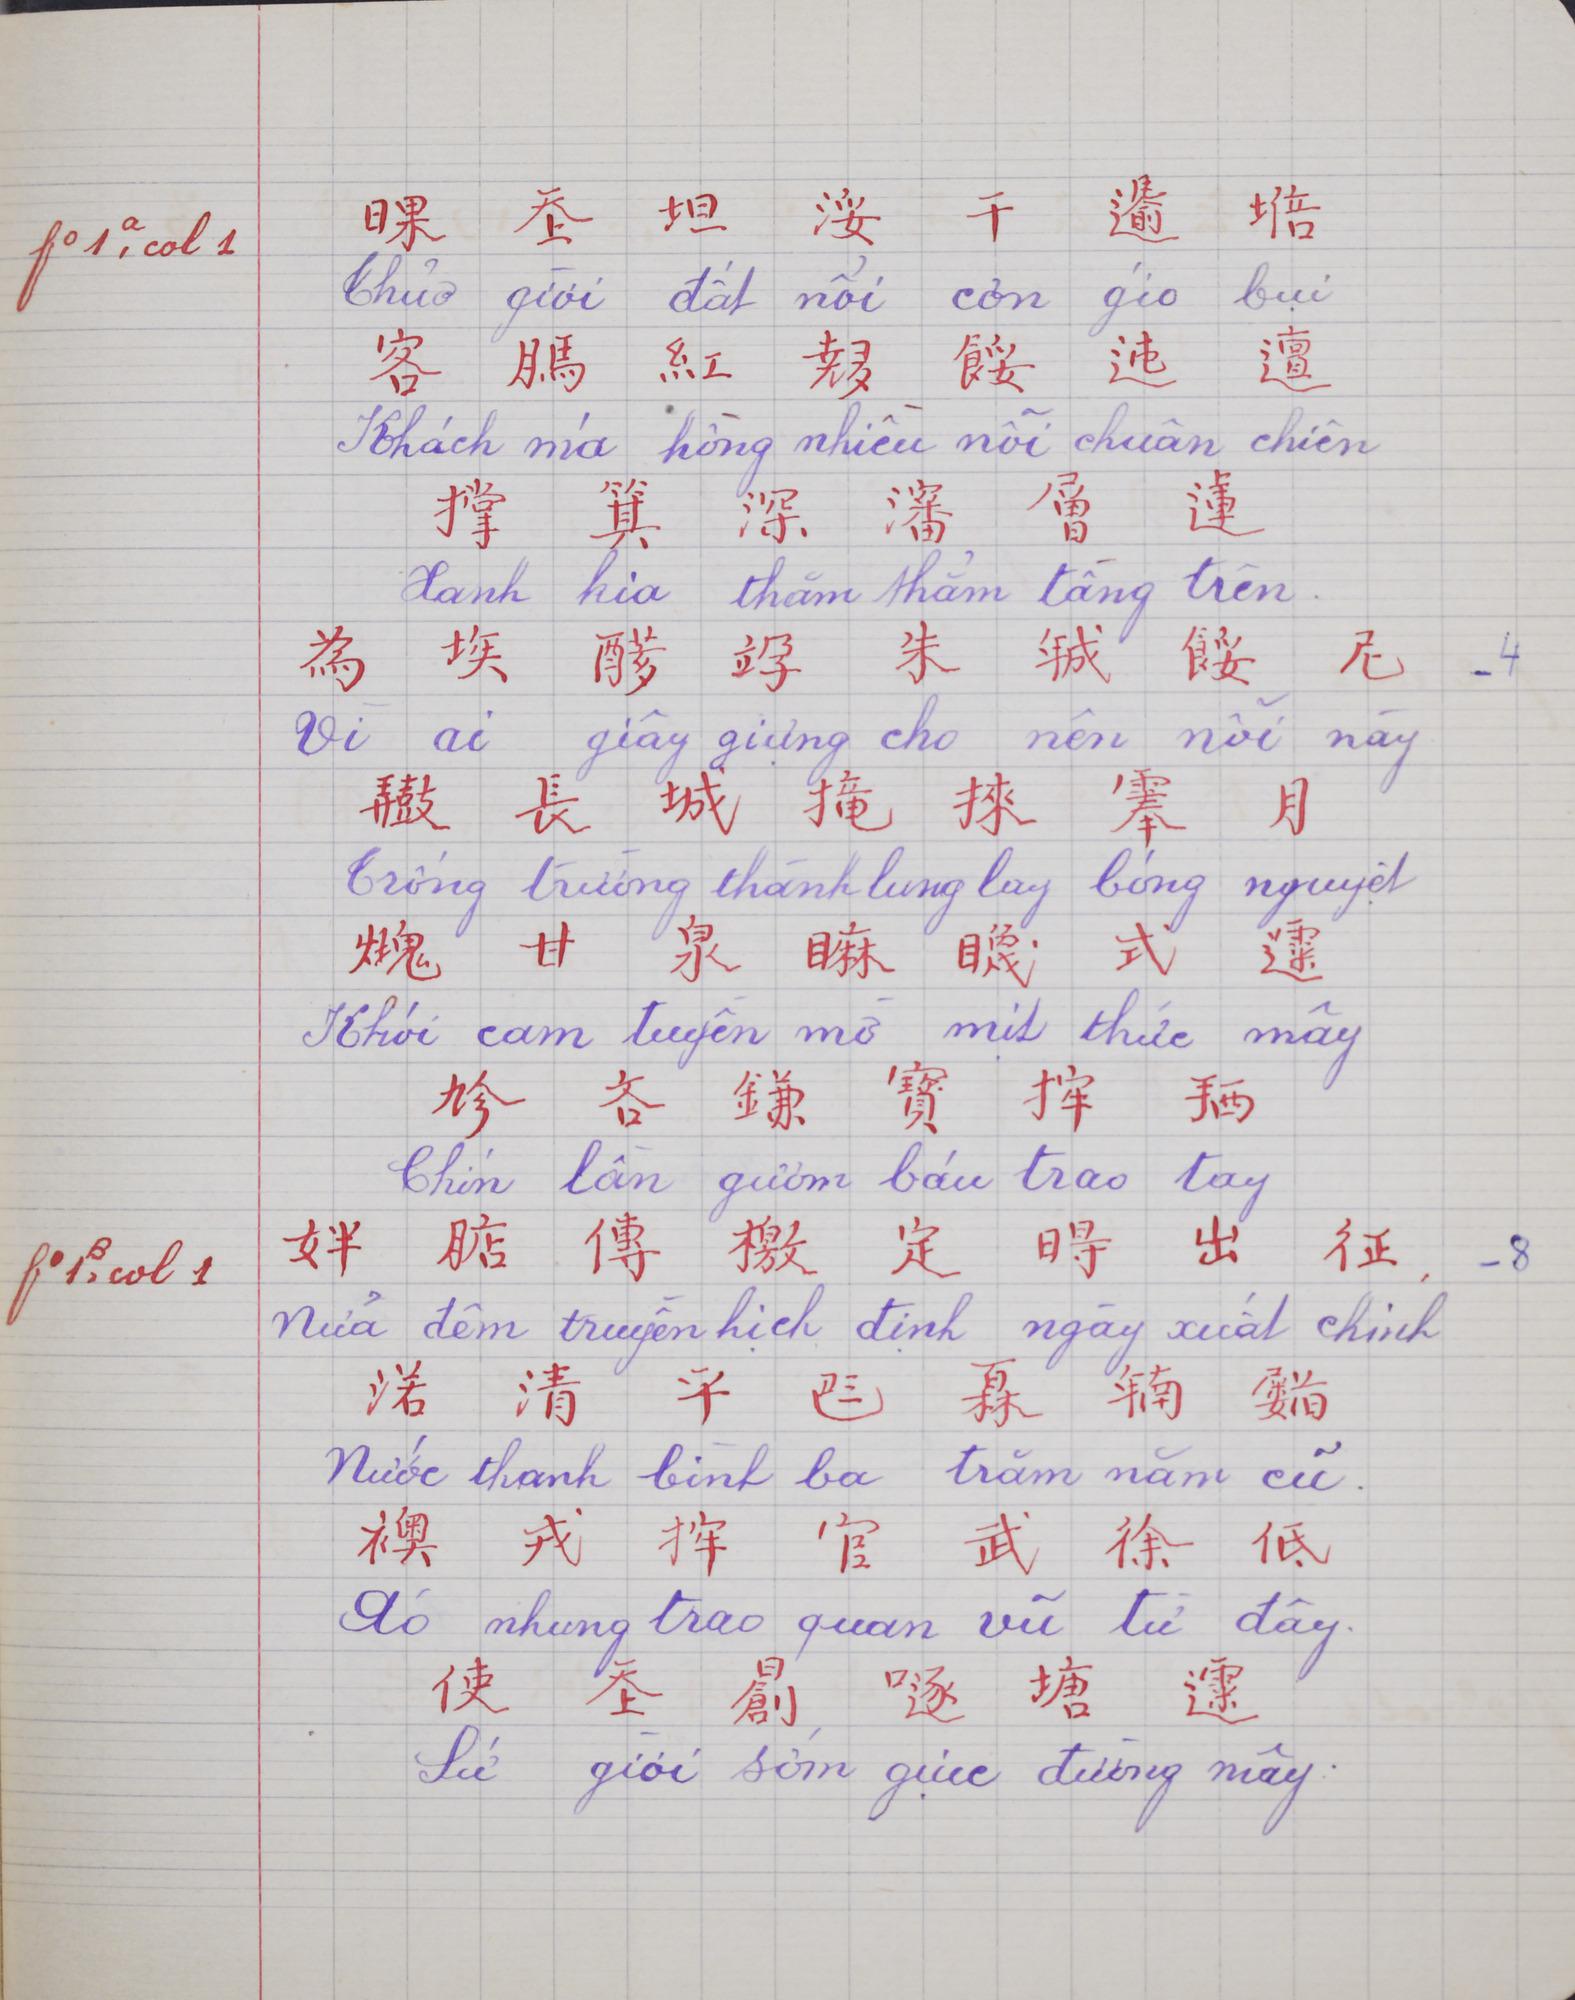 fº 1ª, col 1
𣇞 𡗶 坦 浽 干 𩙍 𡏧
Thủơ giời đất nổi cơn gío bụi
客 𦟐 紅 𡗉 餒 迍 邅
Khách má hồng nhiều nỗi chuân chiên
撑 箕 深 瀋 層 𨕭
Xanh kia thăm thẳm tầng trên.
為 埃 𨢟 𥩯 朱 𢧚 餒 尼 -4
Vì ai giây giựng cho nên nỗi này
𪔠 長 城 掩 㨂 䏾 月
Trống trường thành lung lay bóng nguyệt
𤌋 甘 泉 𥊚 𥌧 式 𩄲
Khói cam tuyền mờ mịt thức mây
𢒂 吝 鎌 寶 𢭂 𢬣
Chín lần gươm báu trao tay
fº 1β, col 1
姅 𣎀 傳 檄 定 𣇞 出 征, -8
Nửa đêm truyền hịch định ngày xuất chinh
渃 清 平 𠀧 𤾓 𢆥 𡳵
Nước thanh bình ba trăm năm cũ.
襖 戎 𢭂 官 武 徐 低
Áo nhung trao quan vũ từ đây.
使 𡗶 𣋽 㖀 塘 𩄲
Sứ giời sớm giục đường mây.